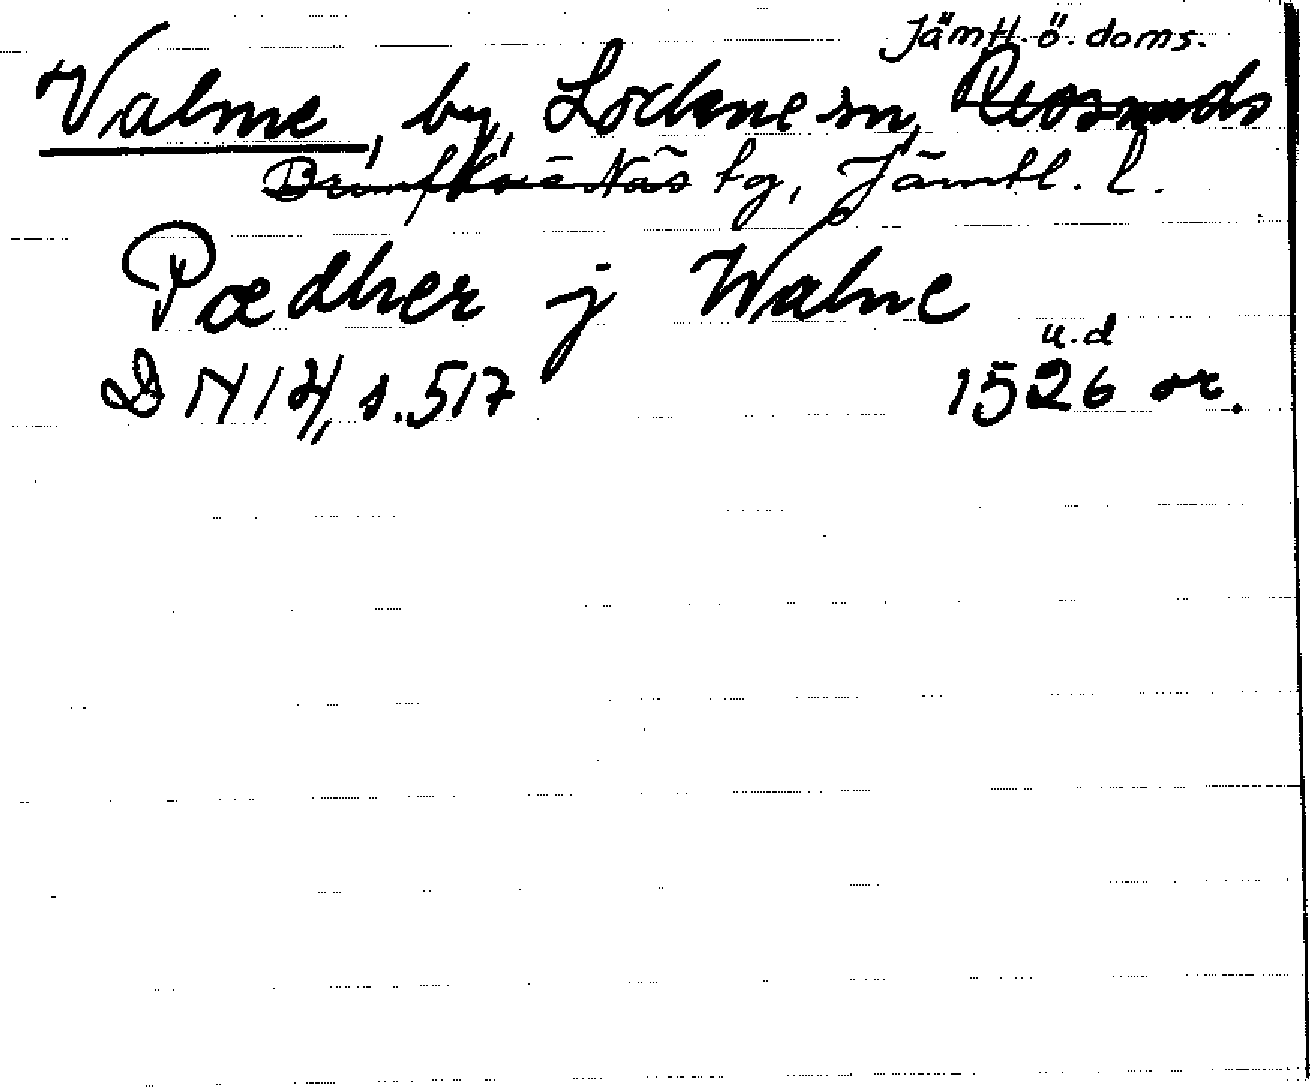 Jämtl. ö. doms.
Valne, by, Lockne sn, Revsunds
Brunflo o Näs tg, Jämtl. l.
Pædher j Walne
u.d
DN 14, s. 517 1526 or.